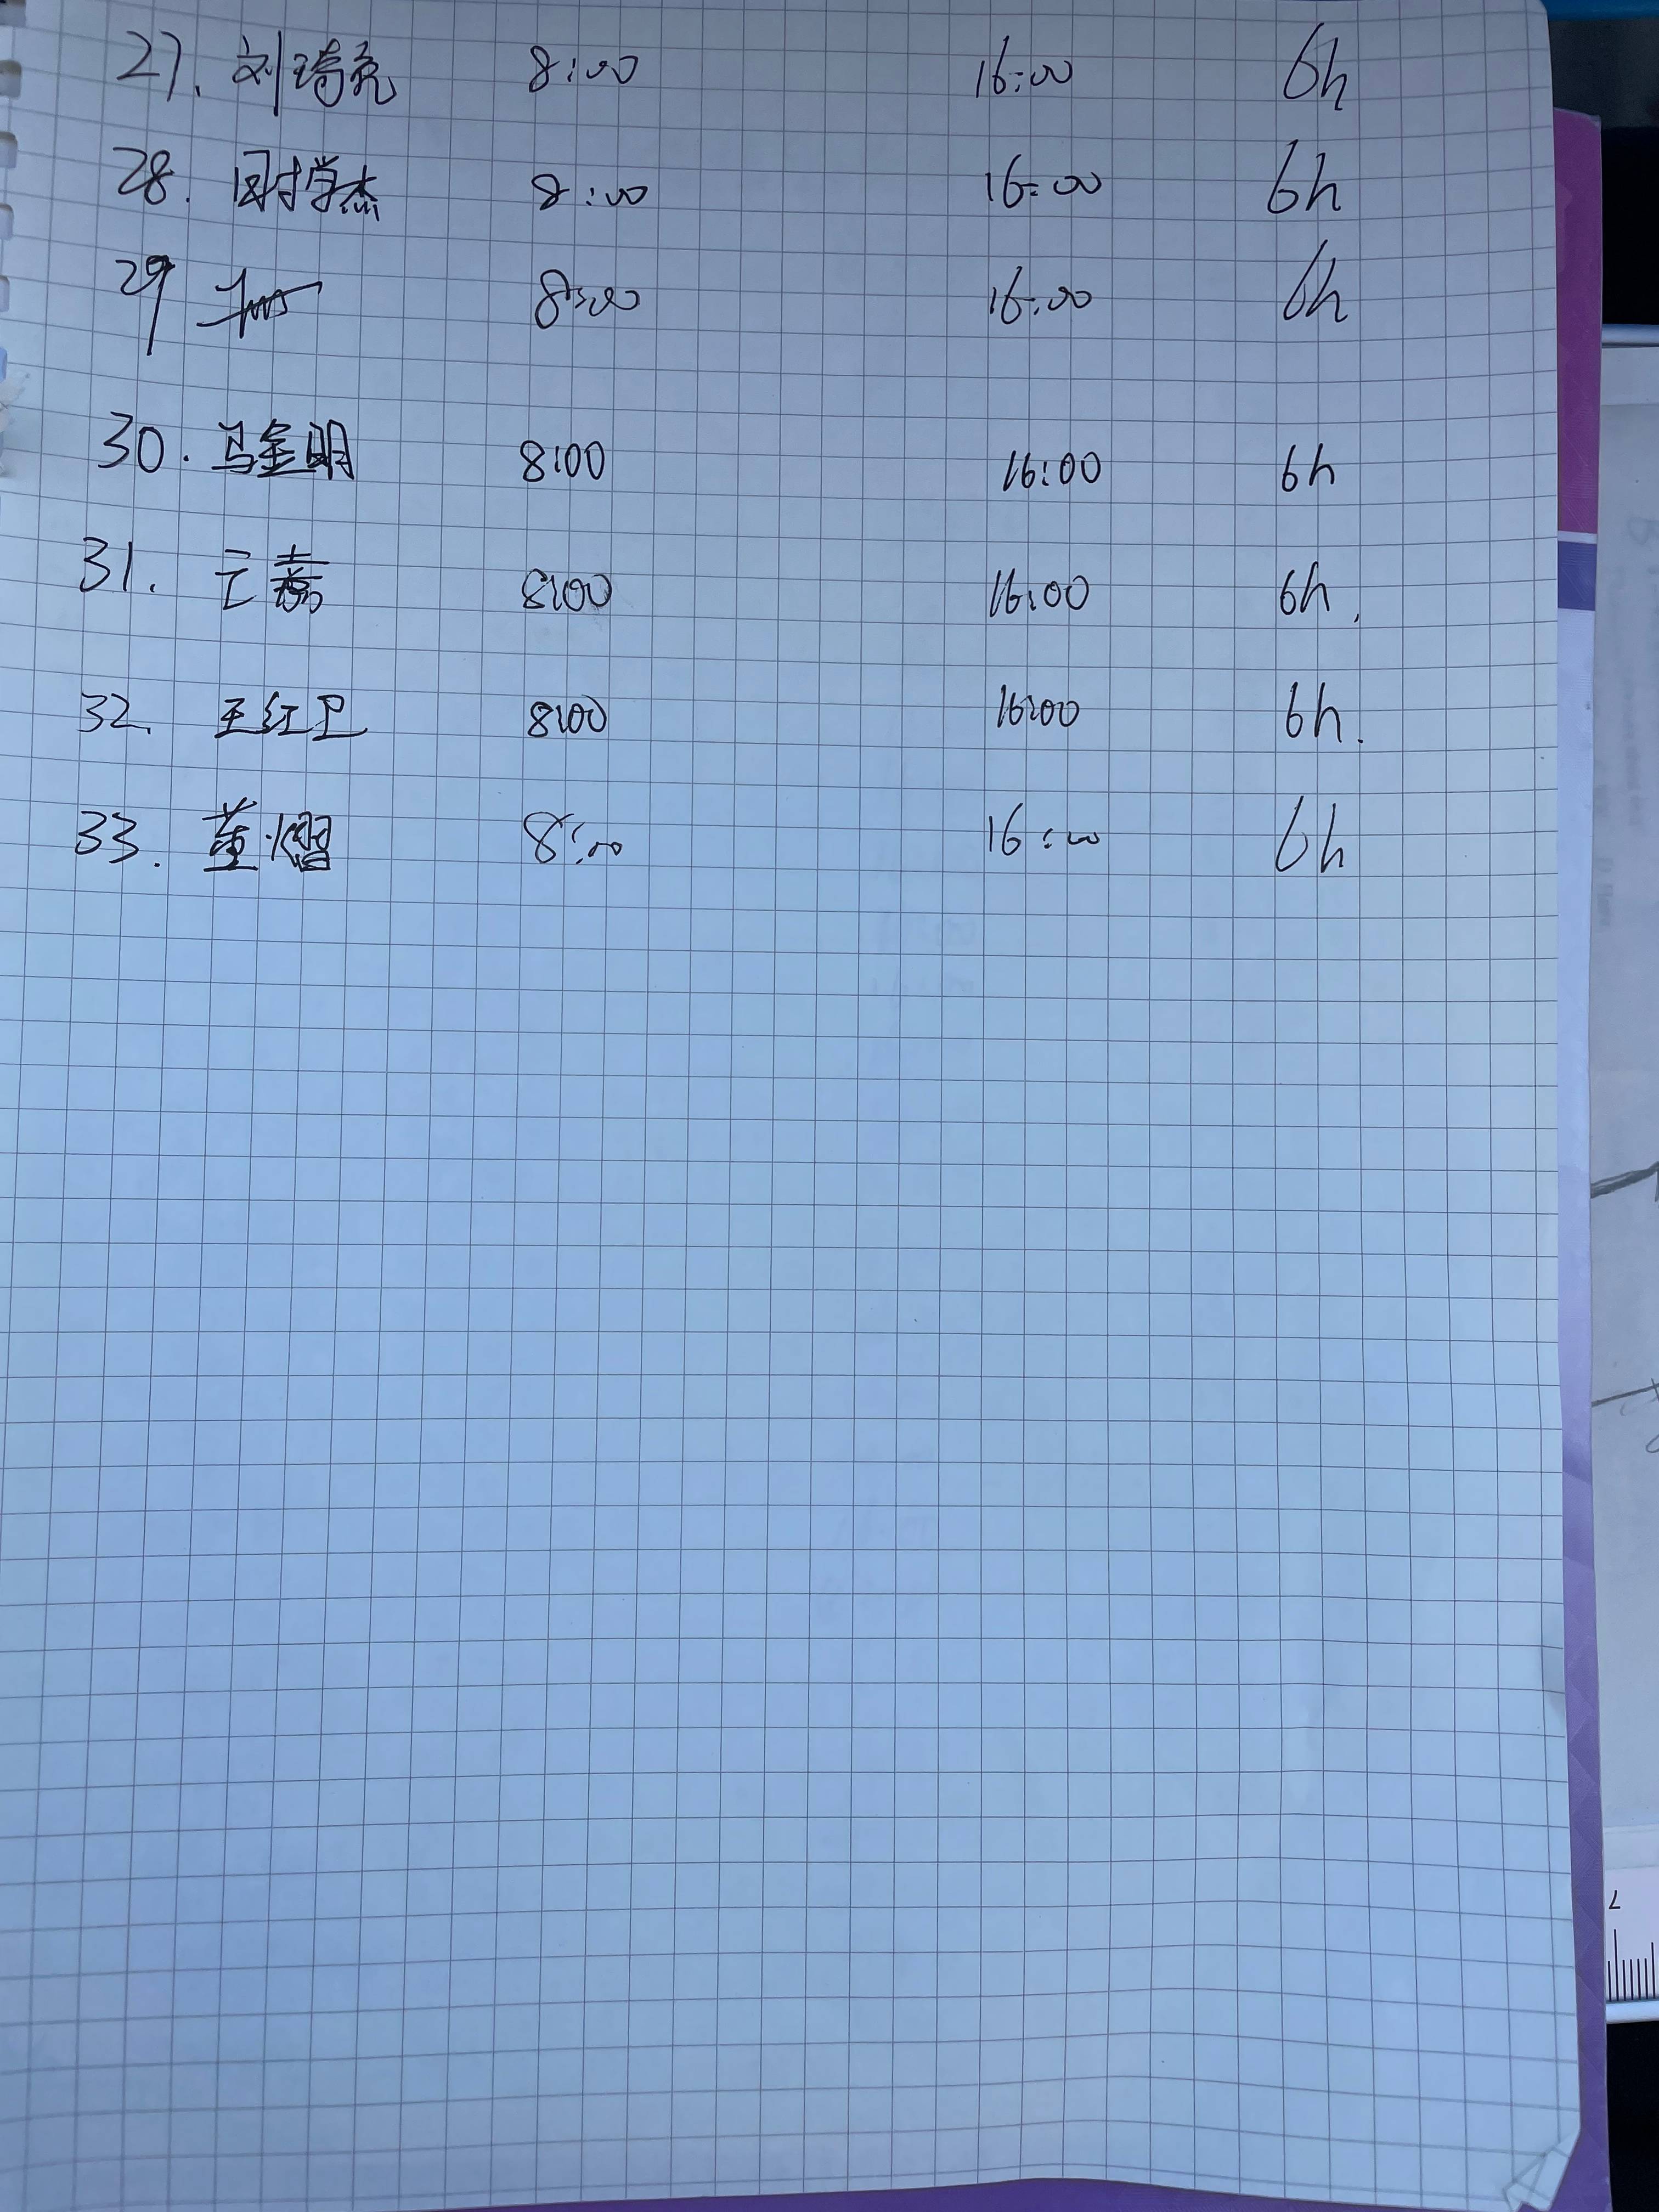 27. 刘琦亮 8:00 16:00 6h
28. 周学杰 8:00 16:00 6h
29 8:00 16:00 6h
30. 马金明 8:00 16:00 6h
31. 8:00 16:00 6h.
32. 王红卫 8:00 16:00 6h.
33. 董熠 8:00 16:00 6h